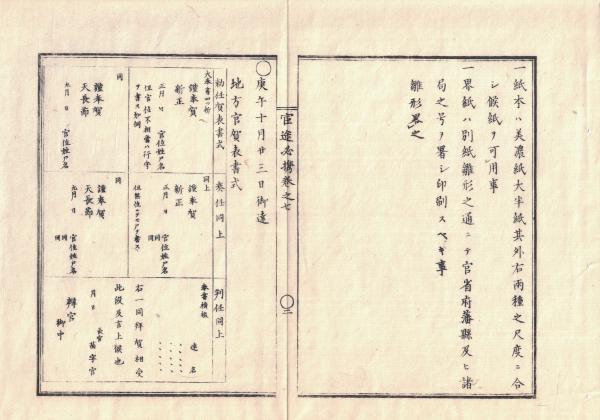 一紙本ハ美濃紙大半紙其外右兩種之尺度ニ合
シ候紙ヲ可用事
一界紙ハ別紙雛形之通ニテ官省府藩縣及ヒ諸
局之号ヲ署シ印刻スベキ事
雛形畧之
官途必携巻之七
三
庚午十月廿三日御達
地方官賀表書式
勅任賀表書式
大奉書四ツ折
謹奉賀
新正
正月日 官位姓尸名
但官位不相當ハ行守
ヲ書ス如例
同
謹奉賀
天長節
九月日 官位姓尸名
奏任同上
同上
謹奉賀
新正
正月日 官位姓尸名
同 同
同
謹奉賀
天長節
九月日 官位姓尸名
同 同
判任同上
奉書横板
連名
右一同拜賀相受
此段及言上候也
月日 長官
苗字官
辨官
御中